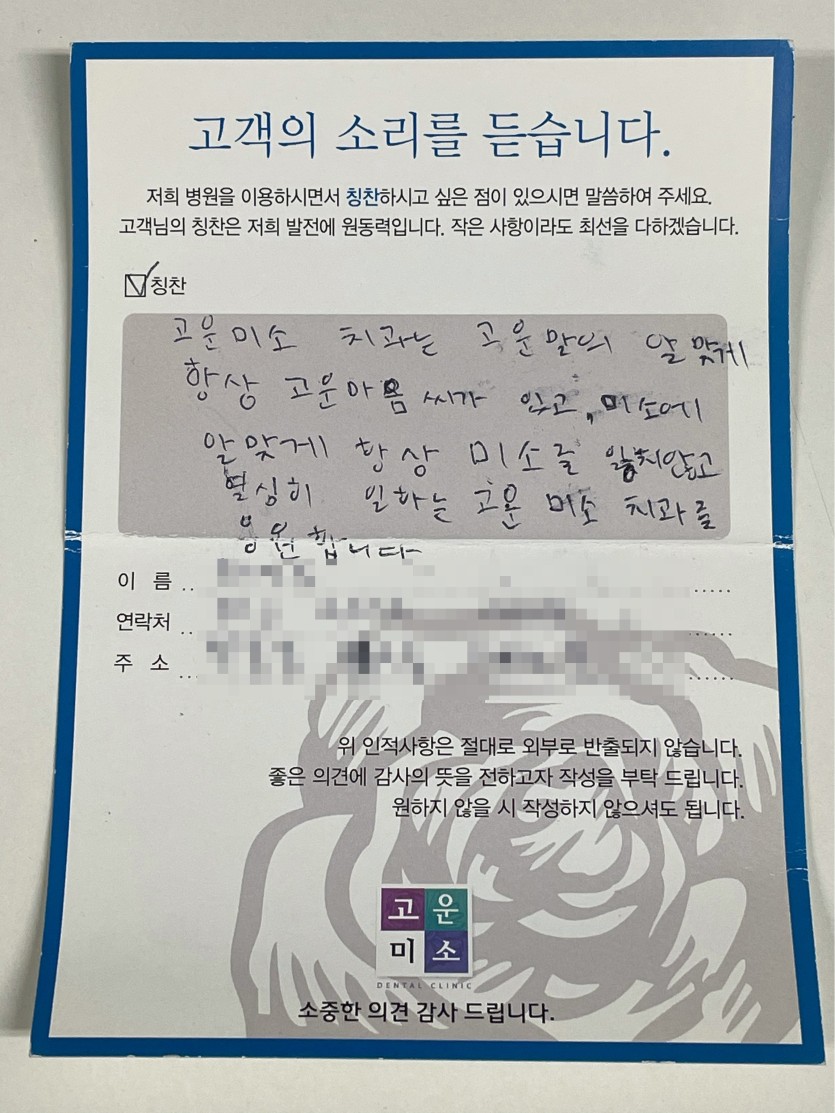 고객의 소리를 듣습니다.
저희 병원을 이용하시면서 칭찬하시고 싶은 점이 있으시면 말씀하여 주세요.
고객님의 칭찬은 저희 발전에 원동력입니다. 작은 사항이라도 최선을 다하겠습니다.
칭찬
고운미소 치과는 고운말의 알맞게
항상 고운마음씨가 있고, 미소에
알맞게 항상 미소를 잃치않고
열심히 일하는 고운 미소 치과를
응원합니다
이 름
연락처
주 소
위 인적사항은 절대로 외부로 반출되지 않습니다.
좋은 의견에 감사의 뜻을 전하고자 작성을 부탁 드립니다.
원하지 않을 시 작성하지 않으셔도 됩니다.
고운
미소
DENTAL CLINIC
소중한 의견 감사 드립니다.